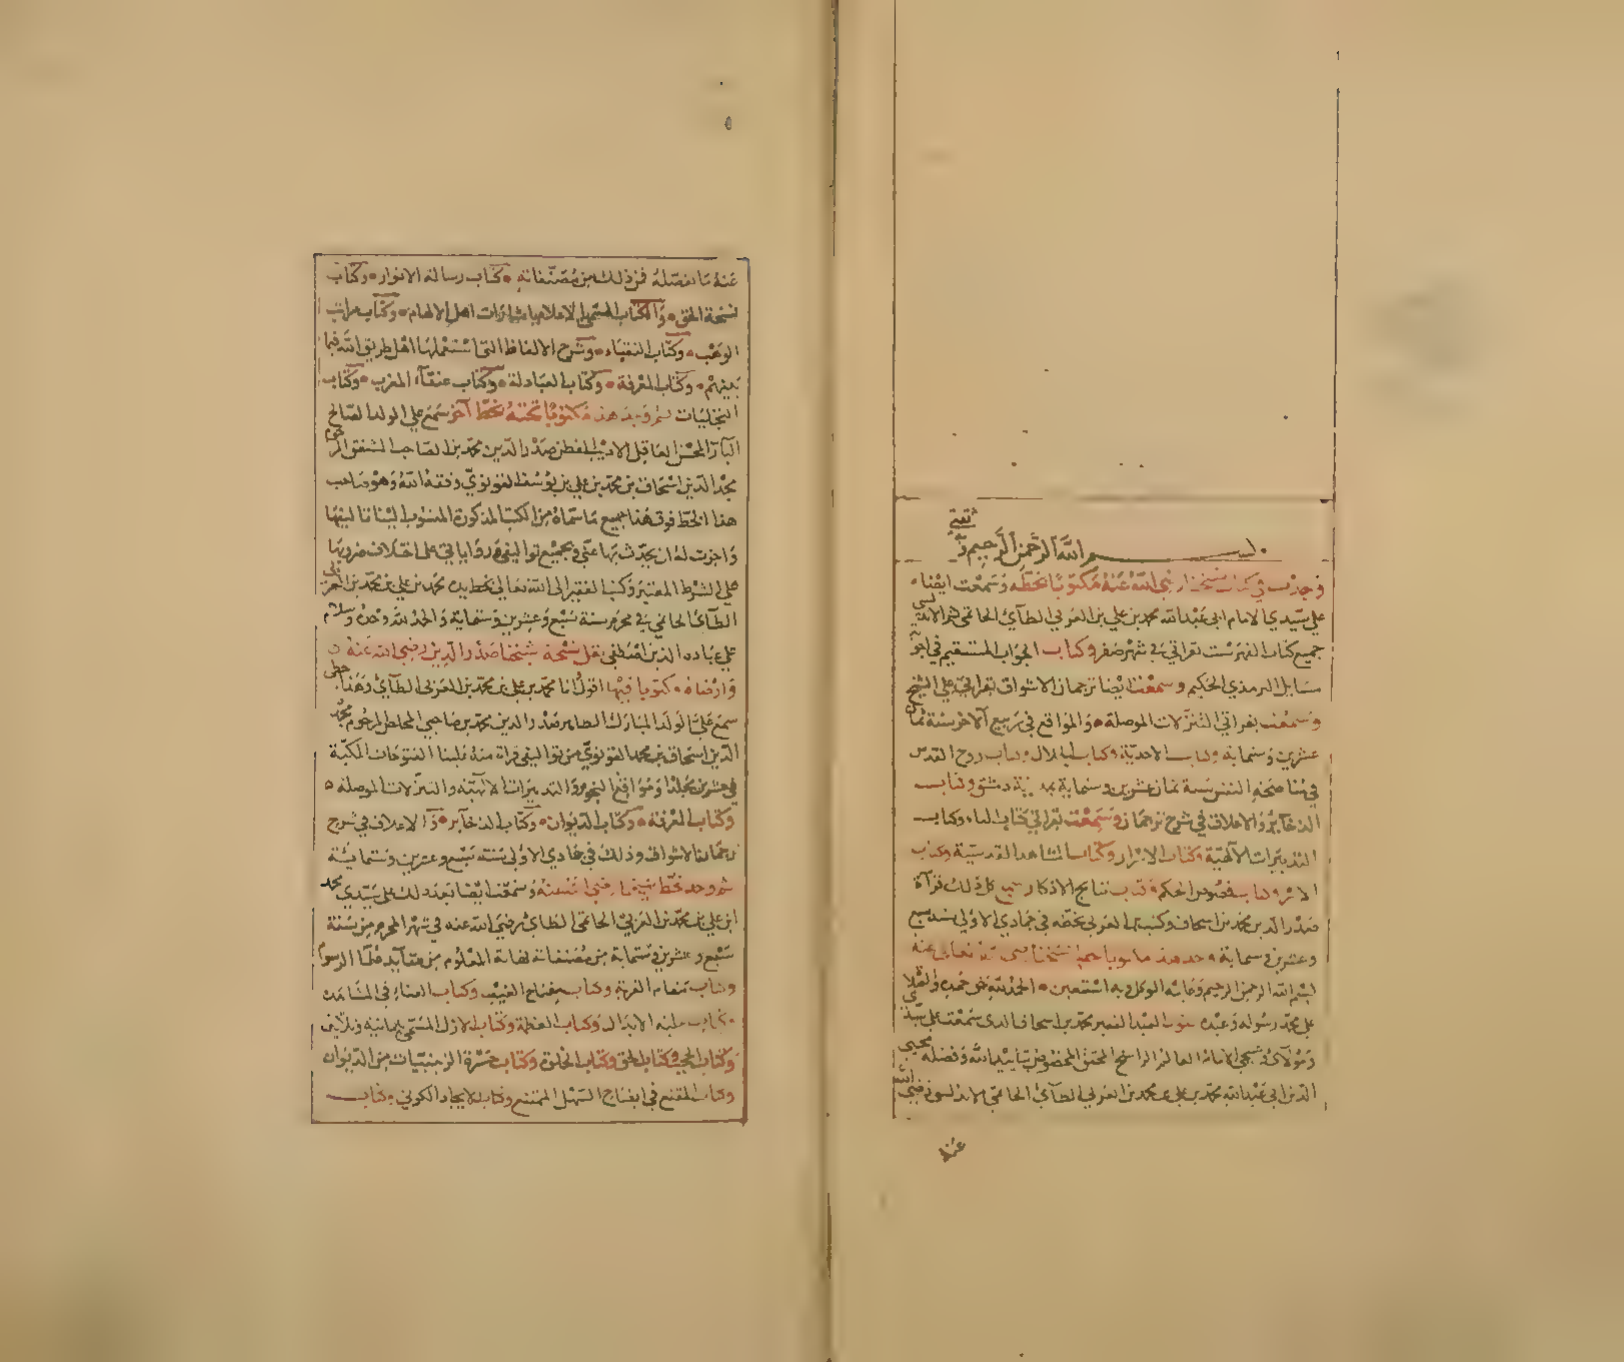 ثقتي
بسم الله الرحمن الرحيم وبه
وجدت في كتاب شيخنا رضي الله عنه مكتوبا بخطه وسمعت ايضا
علي سيدي الامام ابي عبد الله محمد بن علي بن العربي الطآئي الحاتمي ثم الاندلسي
جميع كتاب الفهرست بقرائتي في شهر صفر وكتاب الجواب المستقيم في اجوبة
مسايل الترمذي الحكيم وسمعت ايضا ترجمان الاشواق بقرائتي علي الشيخ
وسمعت بقرائي التنزلات الموصلة والمواقع في ربيع الآخر سنة ثمان
عشرين وستماية وكتاب الاحدية وكتاب الجلال وكتاب روح القدس
في مناصحة النفس سنة ثمان عشرين وستماية بمدينة دمشق وكتاب
الذخاير والاعلاق في شرح ترجمان وسمعت بقرائي كتاب الباء وكتاب
التدبيرات الآلهية وكتاب الاسرار وكتاب المشاهد القدسية وكتاب
الامر وكتاب فصوص الحكم وكتاب نتايج الاذكار سمع كل ذلك قرآة
صدر الدين محمد بن اسحاق وكتب بن العربي بخطه في جمادي الاولي سنة سبع
وعشرين وستماية وجد هذ مكتوبا شيخنا رضي الله تعالى عنه
بسم الله الرحمن الرحيم وعليه التوكل وبه استعين الحمد لله حق حمده والصلاة
علي محمد رسوله وعبده يقول العبد الفقير محمد بن اسحاق الذي سمعت علي سيدي
ومولاي وشيخي الامام العالم الراسخ المحقق المخصوص بتاييد الله وفضله محيي
الدين ابي عبد الله محمد بن علي بن محمد بن العربي الطآئي الحاتمي الاندلسي رضي الله
عنه
عنه ما تفصله فمن ذلك من مصنفاته كتاب رسالة الانوار وكتاب
نسخة الحق والكتاب المسمي الاعلام باشارات اهل الالهام وكتاب مراتب
الوهب وكتاب النقباء وشرح الالفاظ التي استعملها اهل طريق الله فيما
بينهم وكتاب المعرفة وكتاب العبادلة وكتاب عنقآء المغرب وكتاب
التجليات ثم وجد هذ مكتوبا تحته بخط آخر سمع علي الولد الصالح
البآر المحسن العاقل الاديب الفطن صدر الدين محمد بن الصاحب المشفق المرحوم
مجد الدين اسحاق بن محمد بن علي بن يوسف القونوي وفقه الله وهو صاحب
هذا الخط فوق هذا جميع ما سماه من الكتب المذكورة المنسوب لينا تاليفها
واجزت له ان يحدث بها عني وبجميع تواليفي وروايا تي علي اختلاف ضروبها
علي الشرط المعتبر وكتب الفقير الي الله تعالي بخط يده محمد بن علي بن محمد بن العربي
الطآئي الحاتمي في محرم سنة سبع وعشرين وستماية والحمد لله وحده وسلام
علي عباده الذين اصطفي نقل نسخة شيخنا صدر الدين رضي الله عنه
وارضاه مكتوبا فيها اقول انا محمد بن علي بن محمد بن العربي الطآئي وهذا خطي
سمع علي الولد المبارك الطاهر صدر الدين محمد بن صاحبي المخلص المرحوم مجد
الدين اسحاق بن محمد القونوي من تواليفي قراة منه علينا الفتوحات المكية
في عشرين مجلدا ومواقع النجوم والتدبيرات الالهية والتنزلات الموصلة
وكتاب المعرفة وكتاب الديوان وكتاب الذخاير والاعلاق في شرح
ترجمان الاشواق وذلك في جمادي الاولي سنة سبع وعشرين وستمائية
ثم وجد بخط شيخنا رضي الله عنه وسمعت ايضا بعد ذلك علي سيدي محمد
ابن علي بن محمد بن العربي الحاتمي الطآئي رضي الله عنه في شهر المحرم من سنة
سبع وعشرين وستماية من مصنفاته لفاية المعلوم من عقآيد علمآ الرسوم
وكتاب مقام القربة وكتاب مفتاح الغيب وكتاب الفناء في المشاهدة
وكتاب حلية الابدال وكتاب العظمة وكتاب الازل المسمي بمايه وثلاثين
وكتاب الحجب وكتاب الحق وكتاب الخلوة وكتاب حضرة الزينبيات من الديوان
وكتاب المقنع في ايضاح السهل الممتنع وكتاب الايجاد الكوني وكتاب